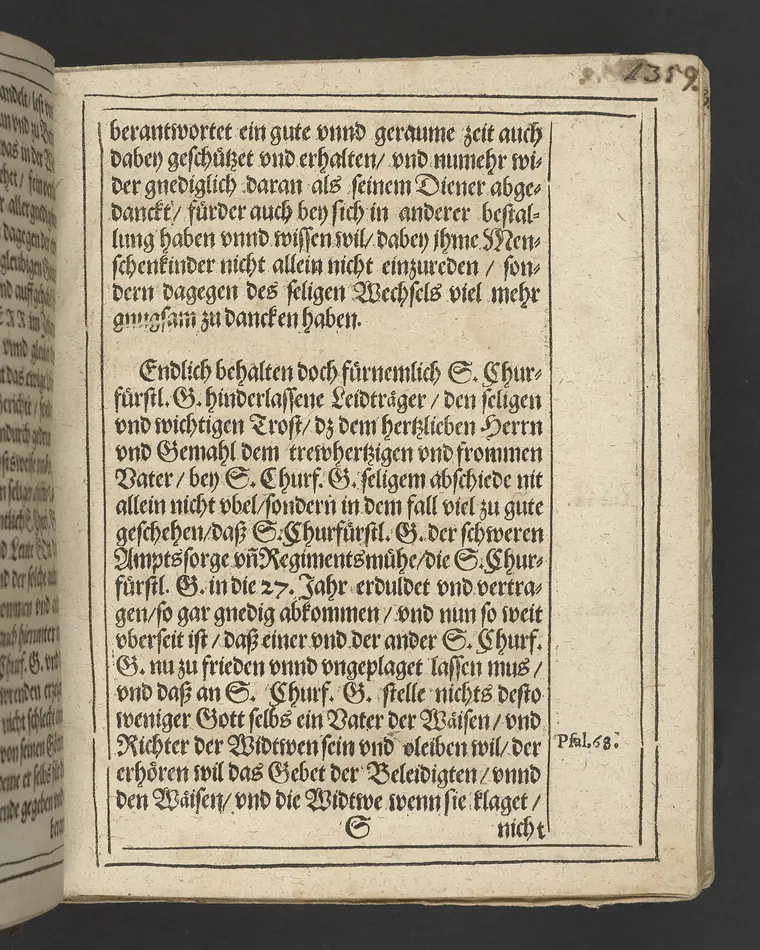 1359.
berantwortet ein gute vnnd geraume zeit auch
dabey geschützet vnd erhalten/ vnd numehr wi-
der gnediglich daran als seinem Diener abge-
danckt/ fürder auch bey sich in anderer bestal-
lung haben vnnd wissen wil/ dabey jhme Men-
schenkinder nicht allein nicht einzureden / son-
dern dagegen des seligen Wechsels viel mehr
gnugsam zu dancken haben.
Endlich behalten doch fürnemlich S. Chur-
fürstl. G. hinderlassene Leidträger / den seligen
vnd wichtigen Trost/ dz dem hertzlieben Herrn
vnd Gemahl dem trewhertzigen vnd frommen
Vater / bey S. Churf. G. seligem abschiede nit
allein nicht vbel/sondern in dem fall viel zu gute
geschehen/daß S.Churfürstl. G. der schweren
Amptssorge vn̄ Regimentsmühe/die S.Chur-
fürstl. G. in die 27. Jahr erduldet vnd vertra-
gen/so gar gnedig abkommen / vnd nun so weit
vberseit ist / daß einer vnd der ander S. Churf.
G. nu zu frieden vnnd vngeplaget lassen mus /
vnd daß an S. Churf. G. stelle nichts desto
weniger Gott selbs ein Vater der Wäisen / vnd
Richter der Widtwen sein vnd bleiben wil/ der
Psal.68.
erhören wil das Gebet der Beleidigten / vnnd
den Wäisen/ vnd die Widtwe wenn sie klaget /
S nicht